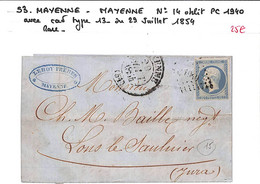 53. MAYENNE - MAYENNE N° 14 oblit PC 1940
avec cad type 13 du 29 Juillet 1854
Rare. 25€
LEROY FRERES
MAYENNE
Monsieur
Ch. M. Baille, negt
Lons le Saulnier
(Jura)
15